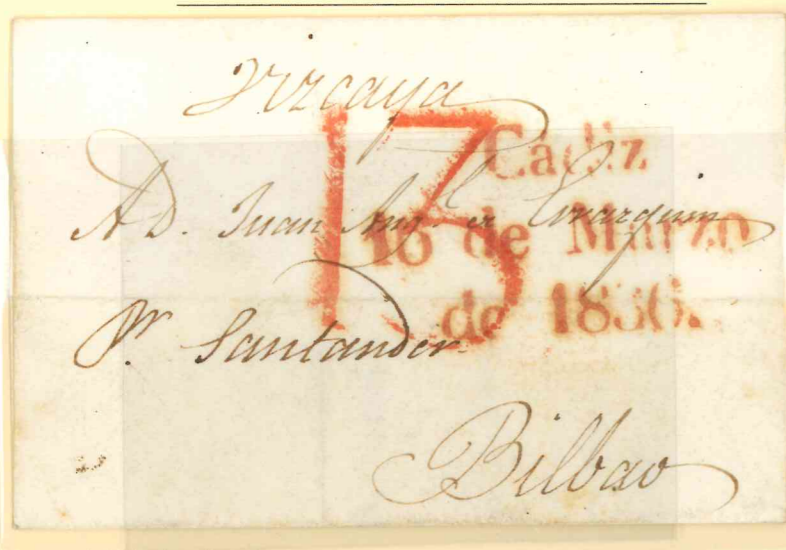 Vizcaya
13
Cadiz
16 de Marzo
de 1836.
A D. Juan Ang.l de
Pr. Santander
Bilbao